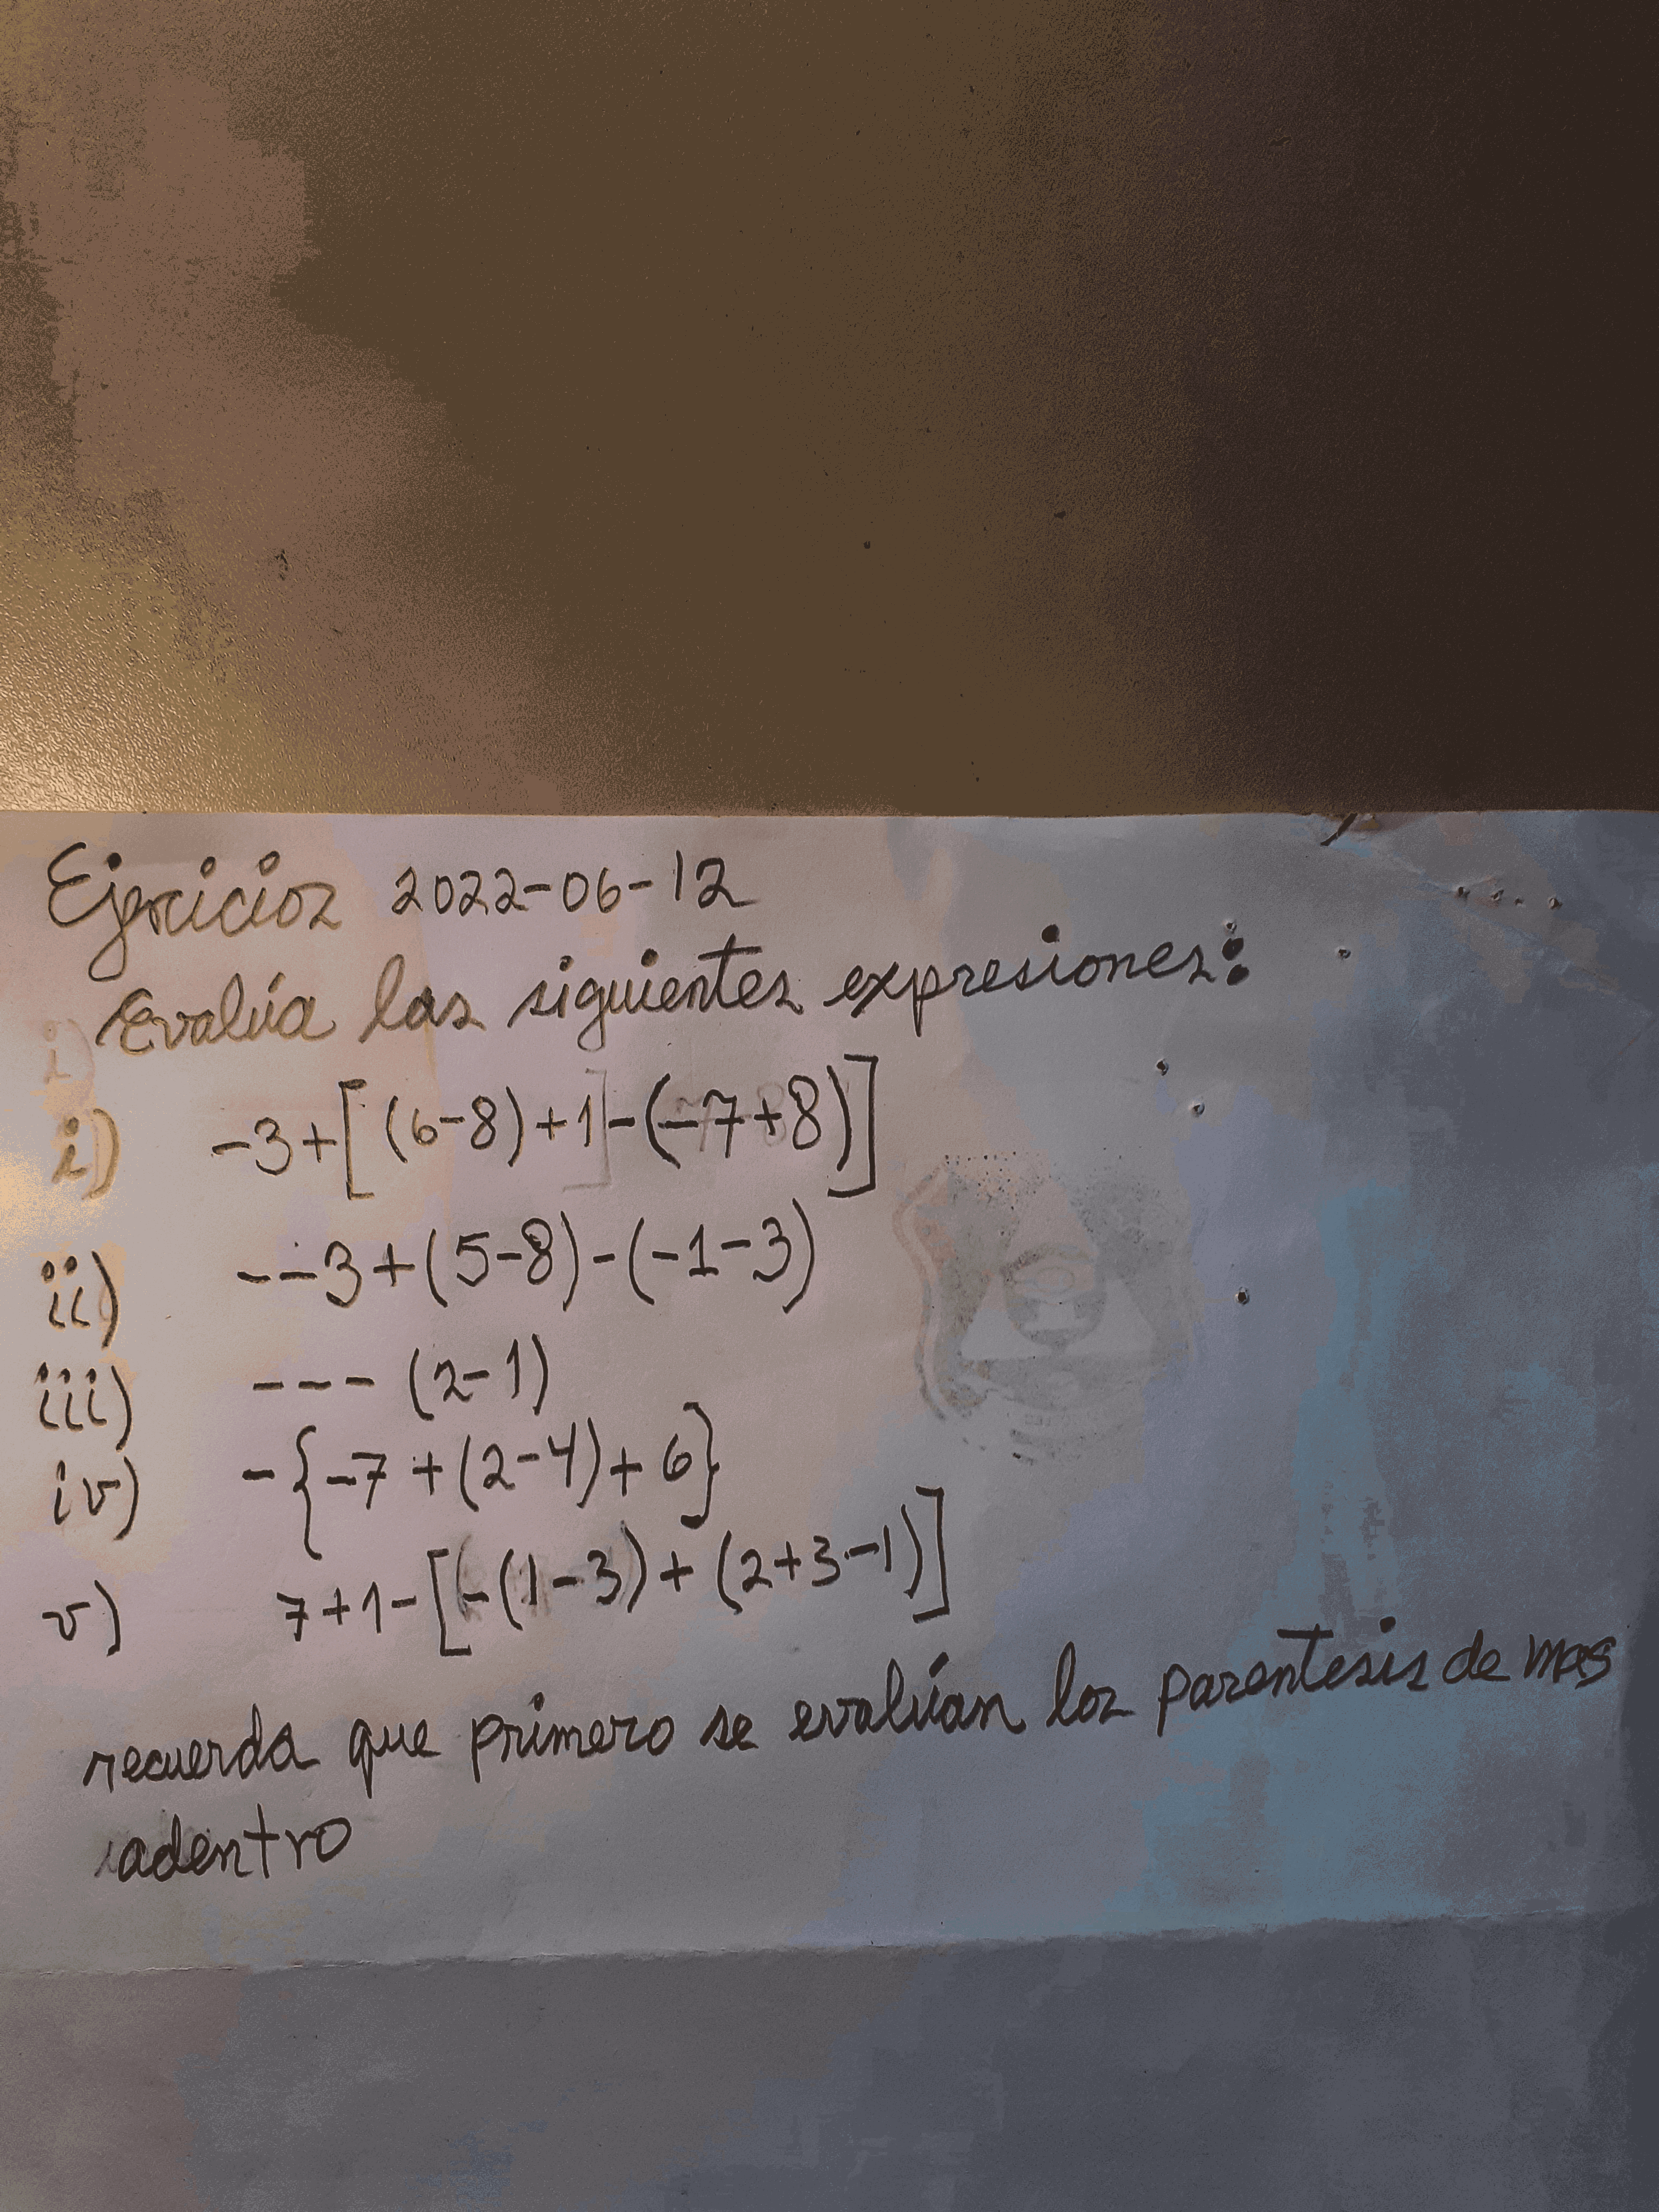 Ejercicios 2022-06-12
Evalúa las siguientes expresiones:
i) -3+[(6-8)+1-(-7+8)]
ii) --3+(5-8)-(-1-3)
iii) ---(2-1)
iv) -{-7+(2-4)+6}
v) 7+1-[-(1-3)+(2+3-1)]
recuerda que primero se evalúan los parentesis de mas
adentro